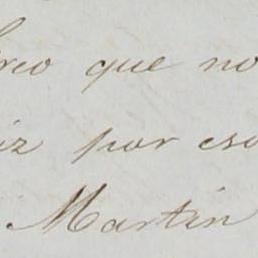 creo que no
iz por eso
Martin